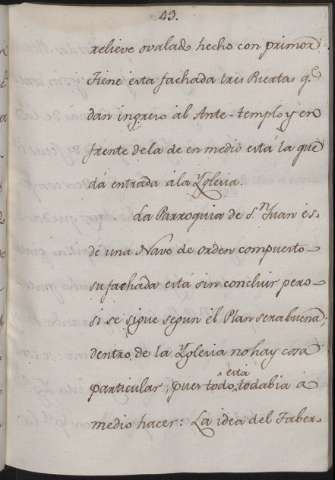 43.
relieve ovalado hecho con primor
Tiene esta fachada tres Puertas q.e
dan ingreso al Ante-templo y en
frente de la de en medio está la que
dá entrada a la Yglesia.
La Parroquia de S.n Juan es
de una Nave de orden compuerto
su fachada está sin concluir pero
si se sigue segun el Plan sera buena
dentro de la Yglesia no hay cosa
particular, pues todo está todabia á
medio hacer: La idea del Taber